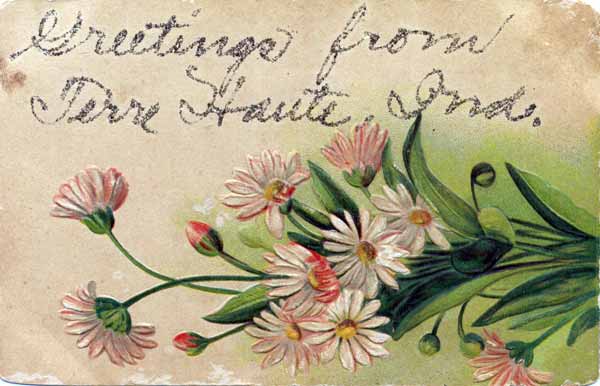 Greetings from
Terre Haute, Ind.